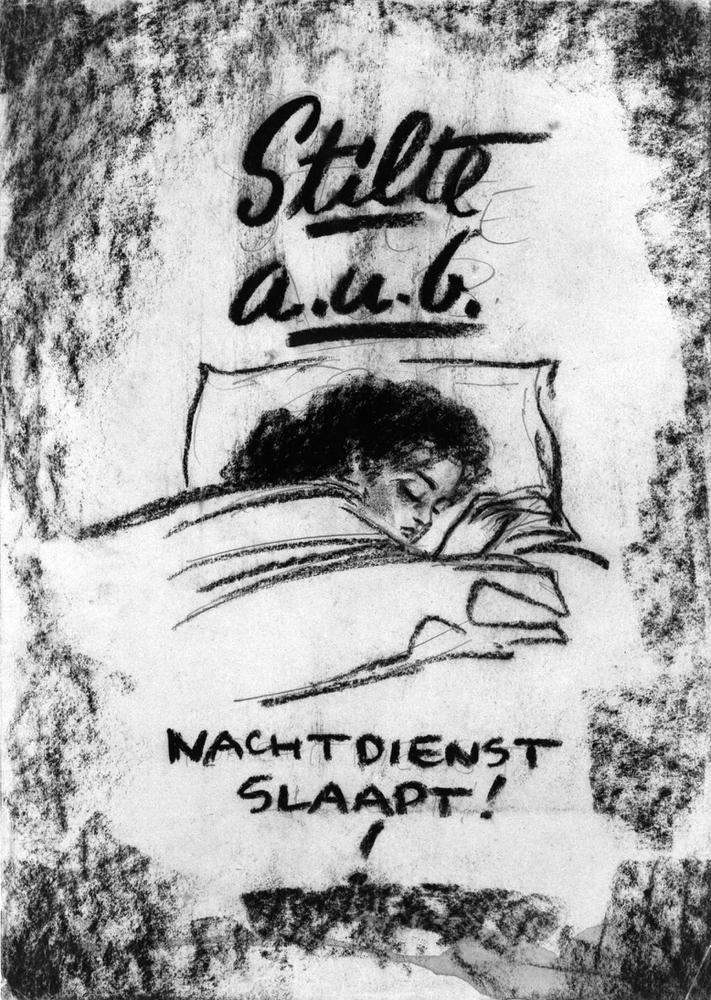 Stilte
a.u.b.
NACHTDIENST
SLAAPT!
!